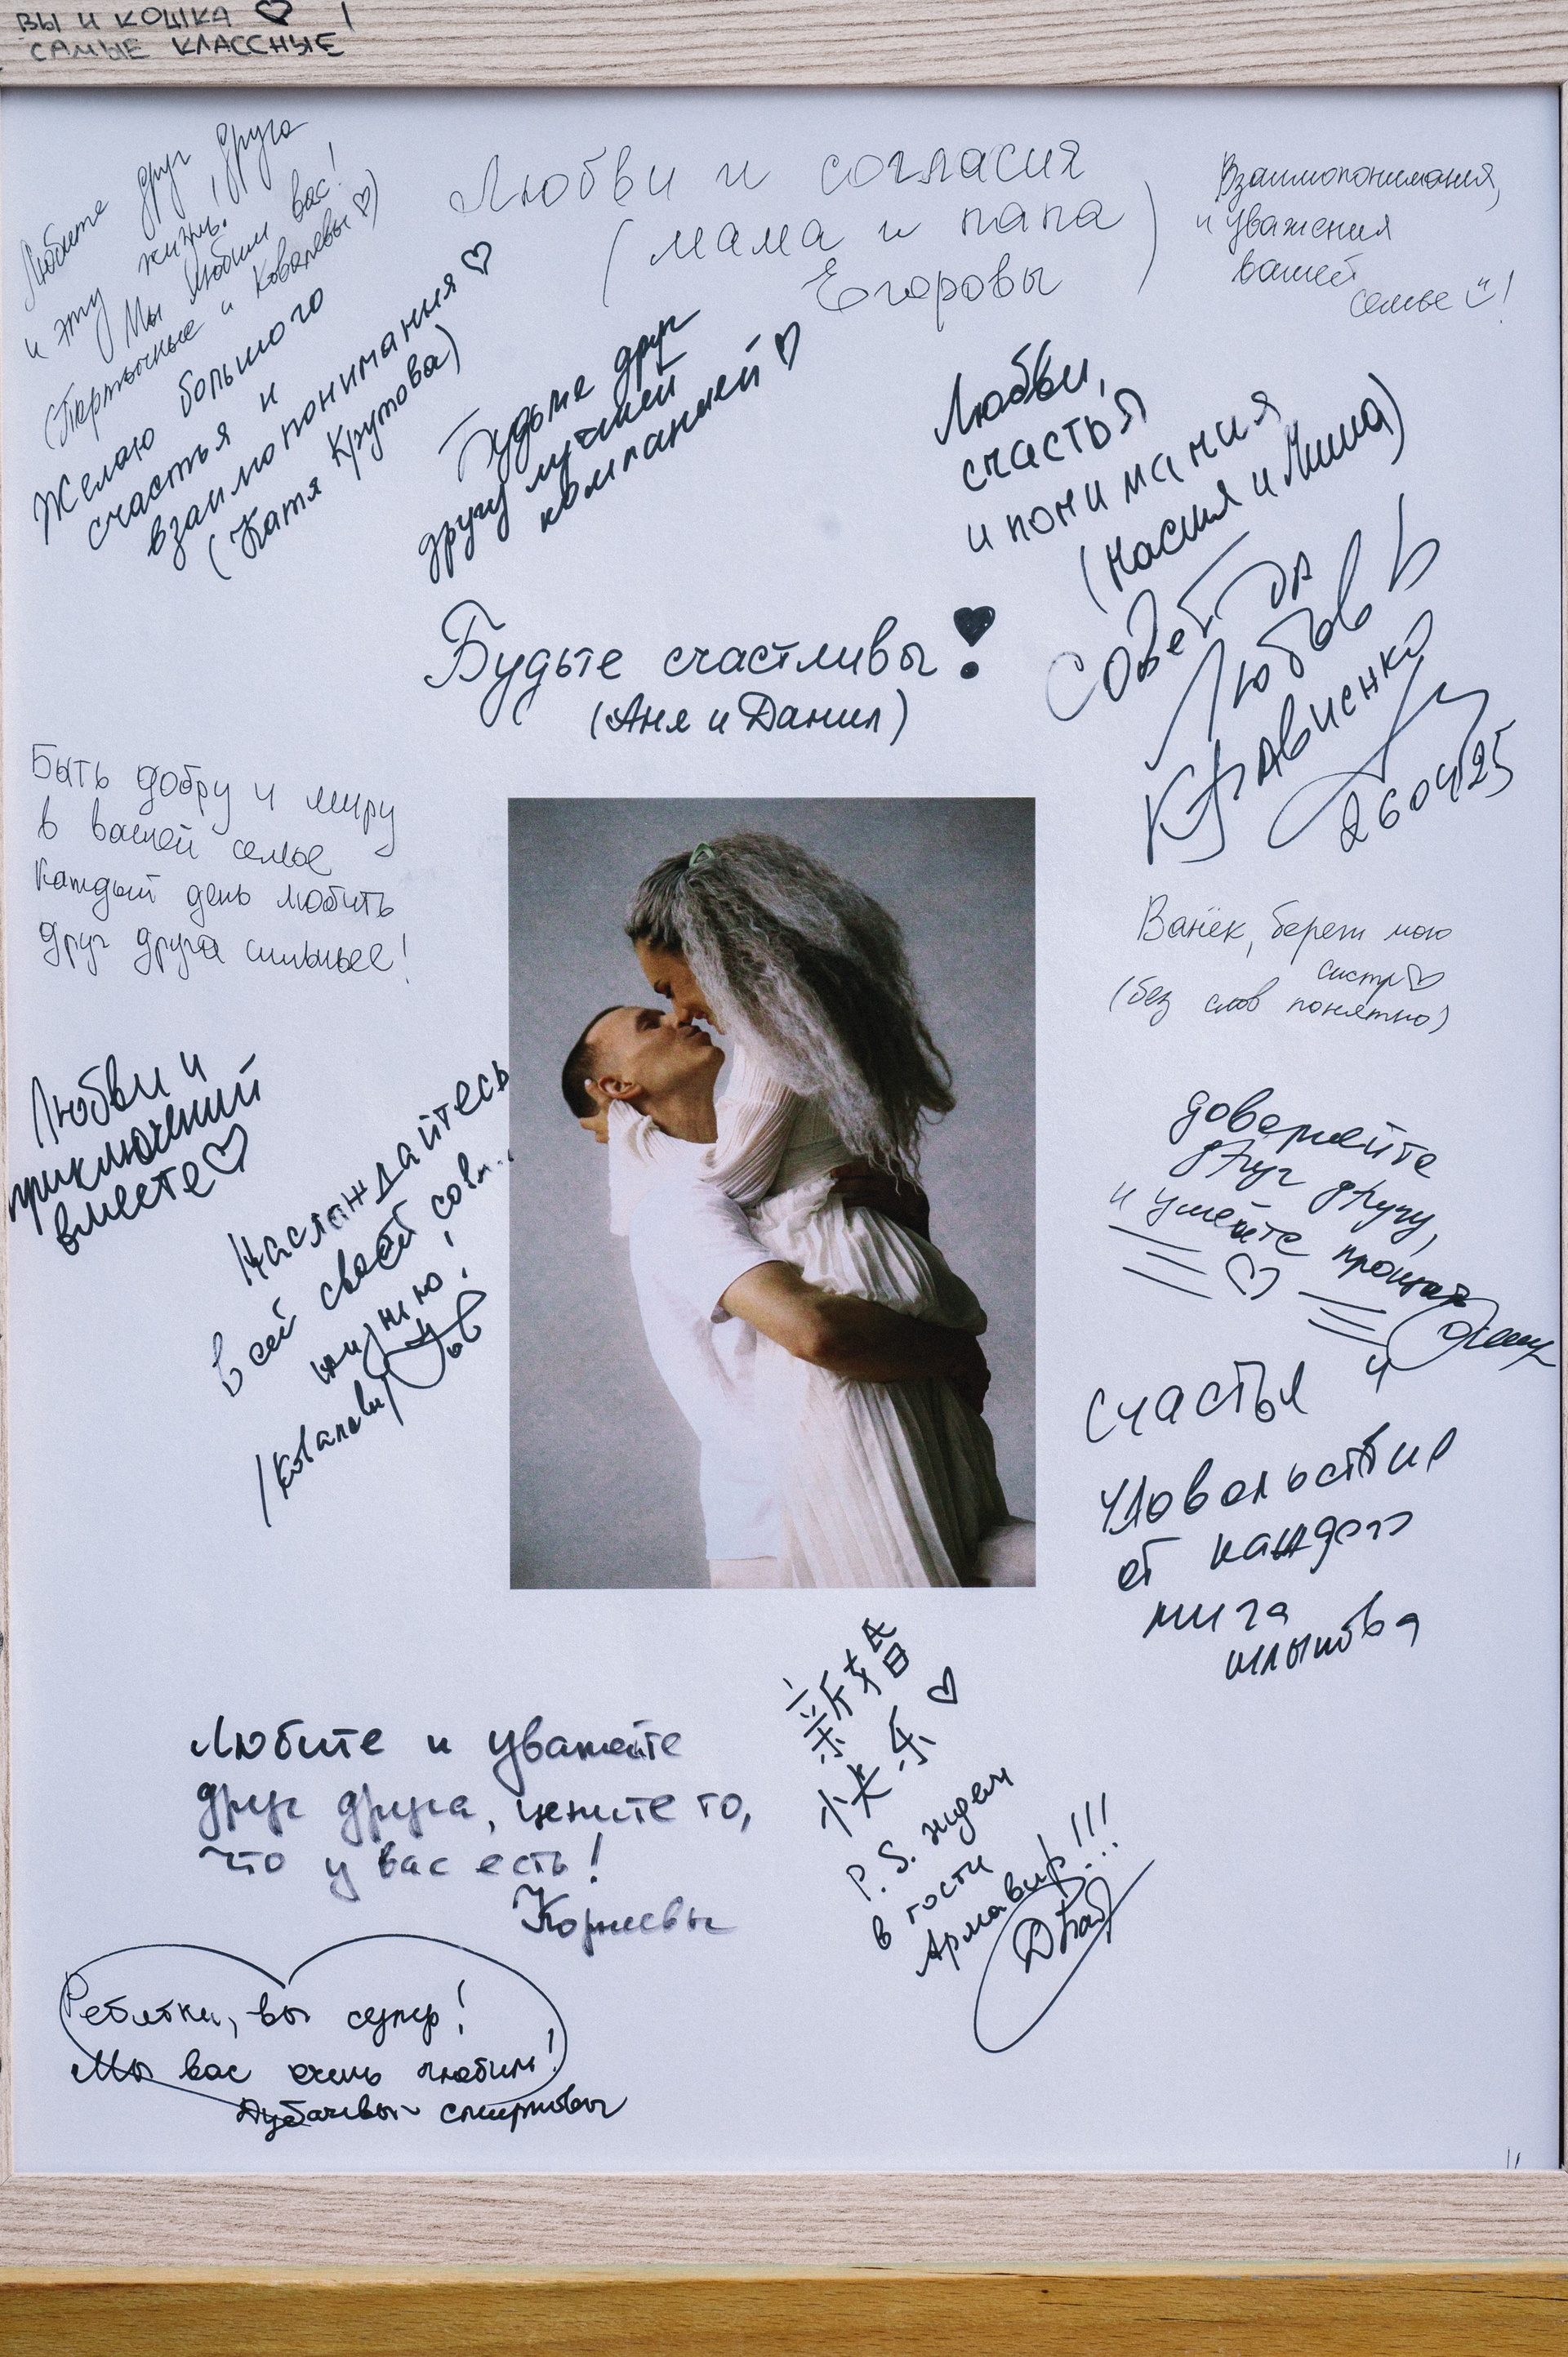 ВЫ И КОШКА ♡
САМЫЕ КЛАССНЫЕ !
Любите друг друга
и эту жизнь!
Мы любим вас!
и Ковалевы ♡)
Любви и согласия
(мама и папа
Егоровы)
Взаимопонимания,
и уважения
вашей
семье !
Желаю большого
счастья и
взаимопонимания ♡
(Катя Крутова)
Будьте друг
другу лучшей
компанией ♡
Любви,
счастья
и понимания
(Настя и Миша)
Совет да
Любовь
Кравиенко
260425
Будьте счастливы !
(Аня и Данил)
Быть добру и миру
в вашей семье
Каждый день любить
друг друга сильнее!
Ванёк, береги мою
систр ♡
(без слов понятно)
Любви и
приключений
вместе ♡
Наслаждайтесь
всей своей совм...
жизнью!
/Ковалевы/
доверяйте
друг другу,
и умейте прощать
♡
Счастья и
удовольствия
от каждого
мига
Любите и уважайте
друг друга, цените то,
что у вас есть!
Корневы
新婚
快乐 ♡
P.S. ждем
в гости
Армавир!!!
Ребятки, вы супер!
Мы вас очень любим!
Дубачевы Смирновы